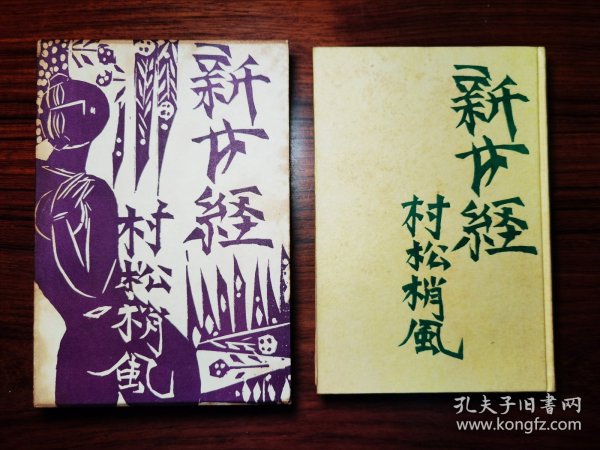 新女経
村松梢風
新女経
村松梢風
孔夫子旧書网
www.kongfz.com